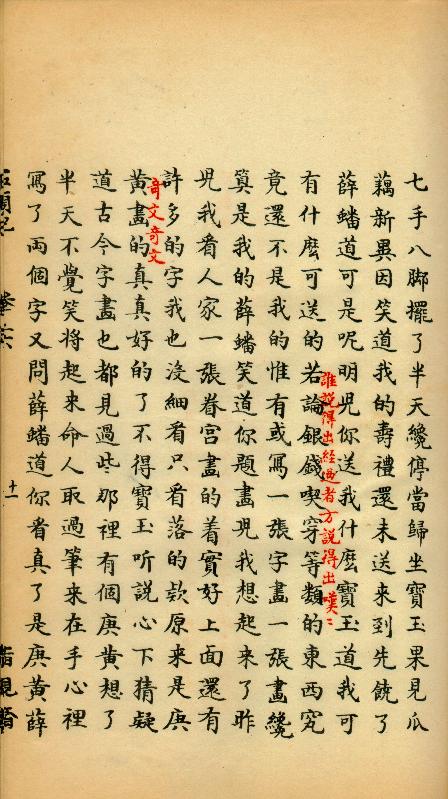 七手八脚擺了半天纔停當歸坐寶玉果見瓜
藕新異因笑道我的壽禮還未送來到先饒了
薛蟠道可是呢明兒你送我什麽寶玉道我可
有什麽可送的若論銀錢喫穿等類的東西究
誰說得出經過者方說得出嘆〻
竟還不是我的惟有或寫一張字畫一張畫纔
算是我的薛蟠笑道你題畫兒我想起來了昨
兒我看人家一張春宫畫的着實好上面還有
許多的字我也沒細看只看落的欵原來是庚
黃畫的真真好的了不得寶玉听說心下猜疑
奇文奇文
道古今字畫也都見過些那裡有個庚黃想了
半天不覺笑將起來命人取過筆來在手心裡
寫了兩個字又問薛蟠道你看真了是庚黃薛
十一